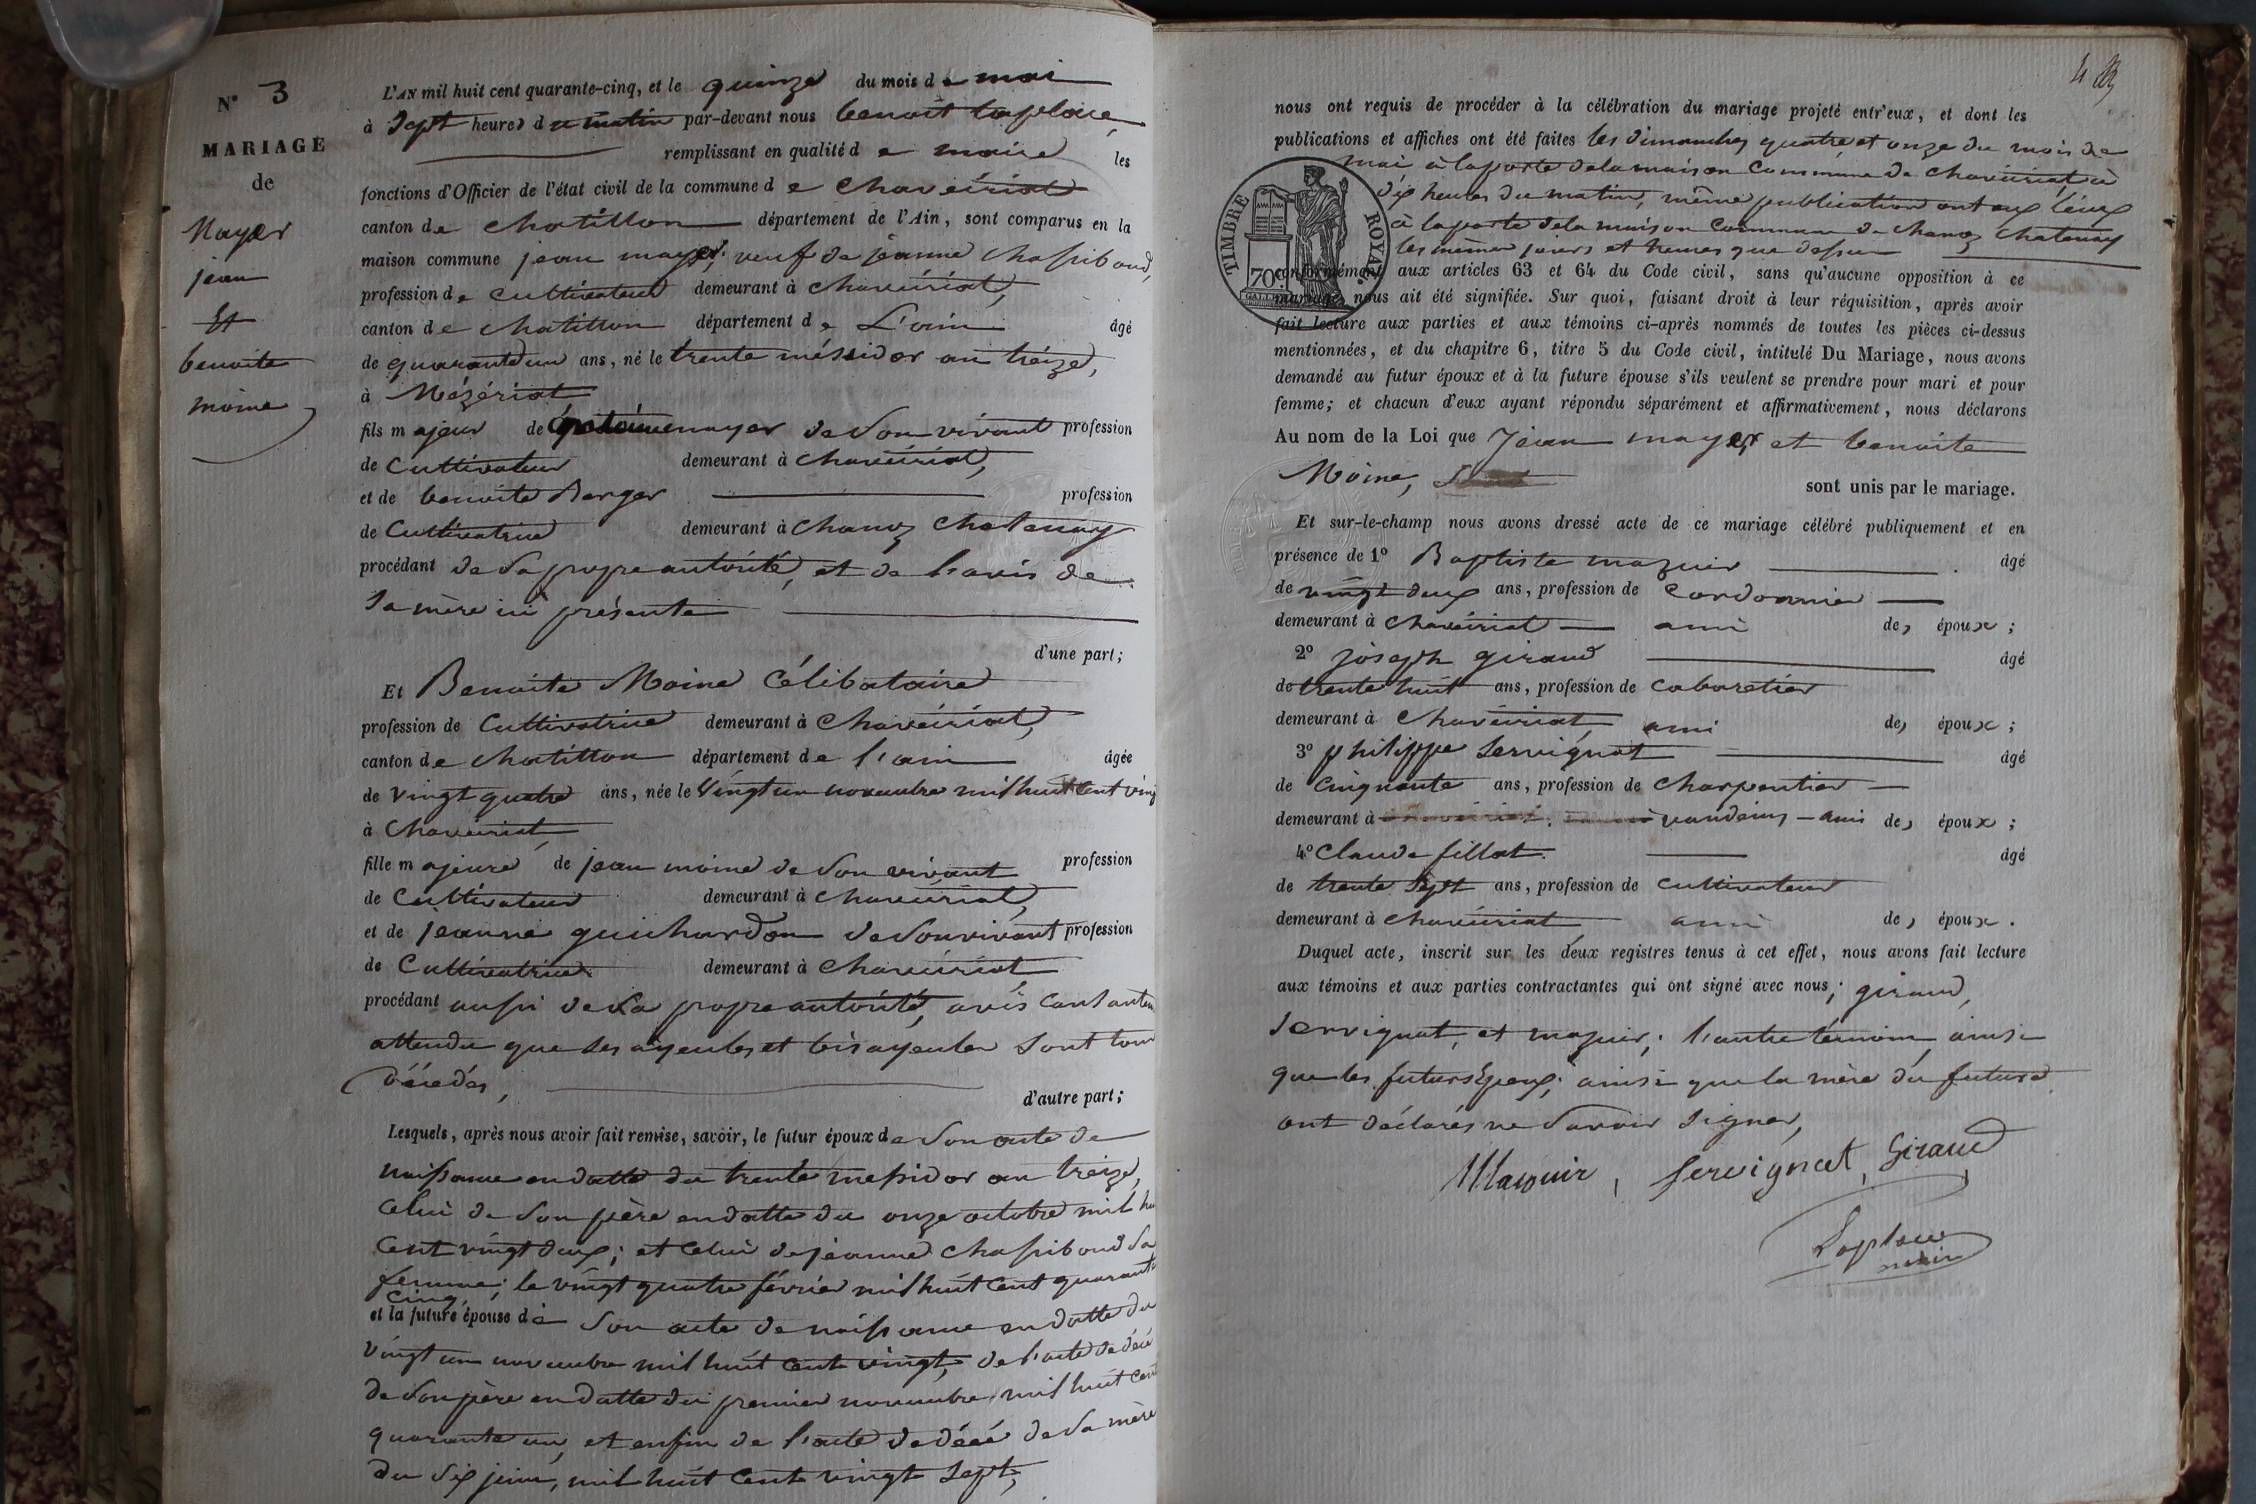 N° 3
MARIAGE
de
Mayer
jean
Et
benoite
moine
L'AN mil huit cent quarante-cinq, et le quinze du mois de mai
à Sept heures du matin par-devant nous benoit laplace,
remplissant en qualité de maire les
fonctions d'Officier de l'état civil de la commune de Chaveiriat
canton de chatillon département de l'Ain, sont comparus en la
maison commune jean mayer, veuf de jeanne Chassiboud,
profession de Cultivateur demeurant à Chaveiriat,
canton de chatillon département de L'ain âgé
de quarante un ans, né le trente méssidor an treize,
à Mézériat
fils majeur de mayer de Son vivant profession
de Cultivateur demeurant à Chaveiriat,
et de benoite Berger profession
de Cultivatrice demeurant à Chanoz Chatenay
procédant de Sa propre autorité, et de l'avis de
Sa mère ici présente
d'une part;
Et Benoite Moine Célibataire
profession de Cultivatrice demeurant à Chaveiriat,
canton de chatillon département de l'ain âgée
de vingt quatre ans, née le Vingt un novembre mil huit Cent ving
à Chaveiriat
fille majeure de jean moine de Son vivant profession
de Cultivateur demeurant à Chaveiriat,
et de jeanne guichardon de Son vivant profession
de Cultivatrice demeurant à Chaveiriat
procédant aussi de Sa propre autorité, avis
attendu que Ses ayeules et bisayeules Sont tous
décédés,
d'autre part;
Lesquels, après nous avoir fait remise, savoir, le futur époux de Son acte de
naissance en datte du trente messidor an treize,
Celui de Son père en datte du onze octobre mil hu
Cent vingt deux; et Celui de jeanne Chassiboud Sa
femme; le vingt quatre février mil huit Cent quarante
cinq,
et la future épouse de Son acte de naissance en datte du
vingt un novembre mil huit Cent vingt, de l'acte de décé
de Son père en datte du premier novembre mil huit Cent
quarante un, et enfin de l'acte de décé de Sa mère
du Six juin, mil huit Cent vingt Sept,
nous ont requis de procéder à la célébration du mariage projeté entr'eux, et dont les
publications et affiches ont été faites les dimanches quatre et onze du mois de
mai à la porte de la maison Commune de Chaveiriat à
dix heures du matin, même publication ont eux lieux
à la porte de la maison Commune de Chanoz Chatenay
les mêmes jours et heures que dessus
TIMBRE ROYAL
70
conformément aux articles 63 et 64 du Code civil, sans qu'aucune opposition à ce
mariage nous ait été signifiée. Sur quoi, faisant droit à leur réquisition, après avoir
fait lecture aux parties et aux témoins ci-après nommés de toutes les pièces ci-dessus
mentionnées, et du chapitre 6, titre 5 du Code civil, intitulé Du Mariage, nous avons
demandé au futur époux et à la future épouse s'ils veulent se prendre pour mari et pour
femme; et chacun d'eux ayant répondu séparément et affirmativement, nous déclarons
Au nom de la Loi que Jean mayer et benoite
Moine,
sont unis par le mariage.
Et sur-le-champ nous avons dressé acte de ce mariage célébré publiquement et en
présence de 1° Baptiste mazuir âgé
de vingt deux ans, profession de Cordonnier
demeurant à Chaveiriat ami des époux;
2° joseph giraud âgé
de trente huit ans, profession de Cabaretier
demeurant à Chaveiriat, ami des époux;
3° philippe Servignat âgé
de Cinquante ans, profession de Charpentier
demeurant à vandeins ami des époux;
4° Claude fillat âgé
de trente Sept ans, profession de Cultivateur
demeurant à Chaveiriat ami des époux.
Duquel acte, inscrit sur les deux registres tenus à cet effet, nous avons fait lecture
aux témoins et aux parties contractantes qui ont signé avec nous; giraud,
Servignat, et mazuir; l'autre témoin, ainsi
que les futurs Epoux; ainsi que la mère du future
ont déclarés ne Savoir Signer,
Mazuir, Servignat, Giraud
Laplace
maire